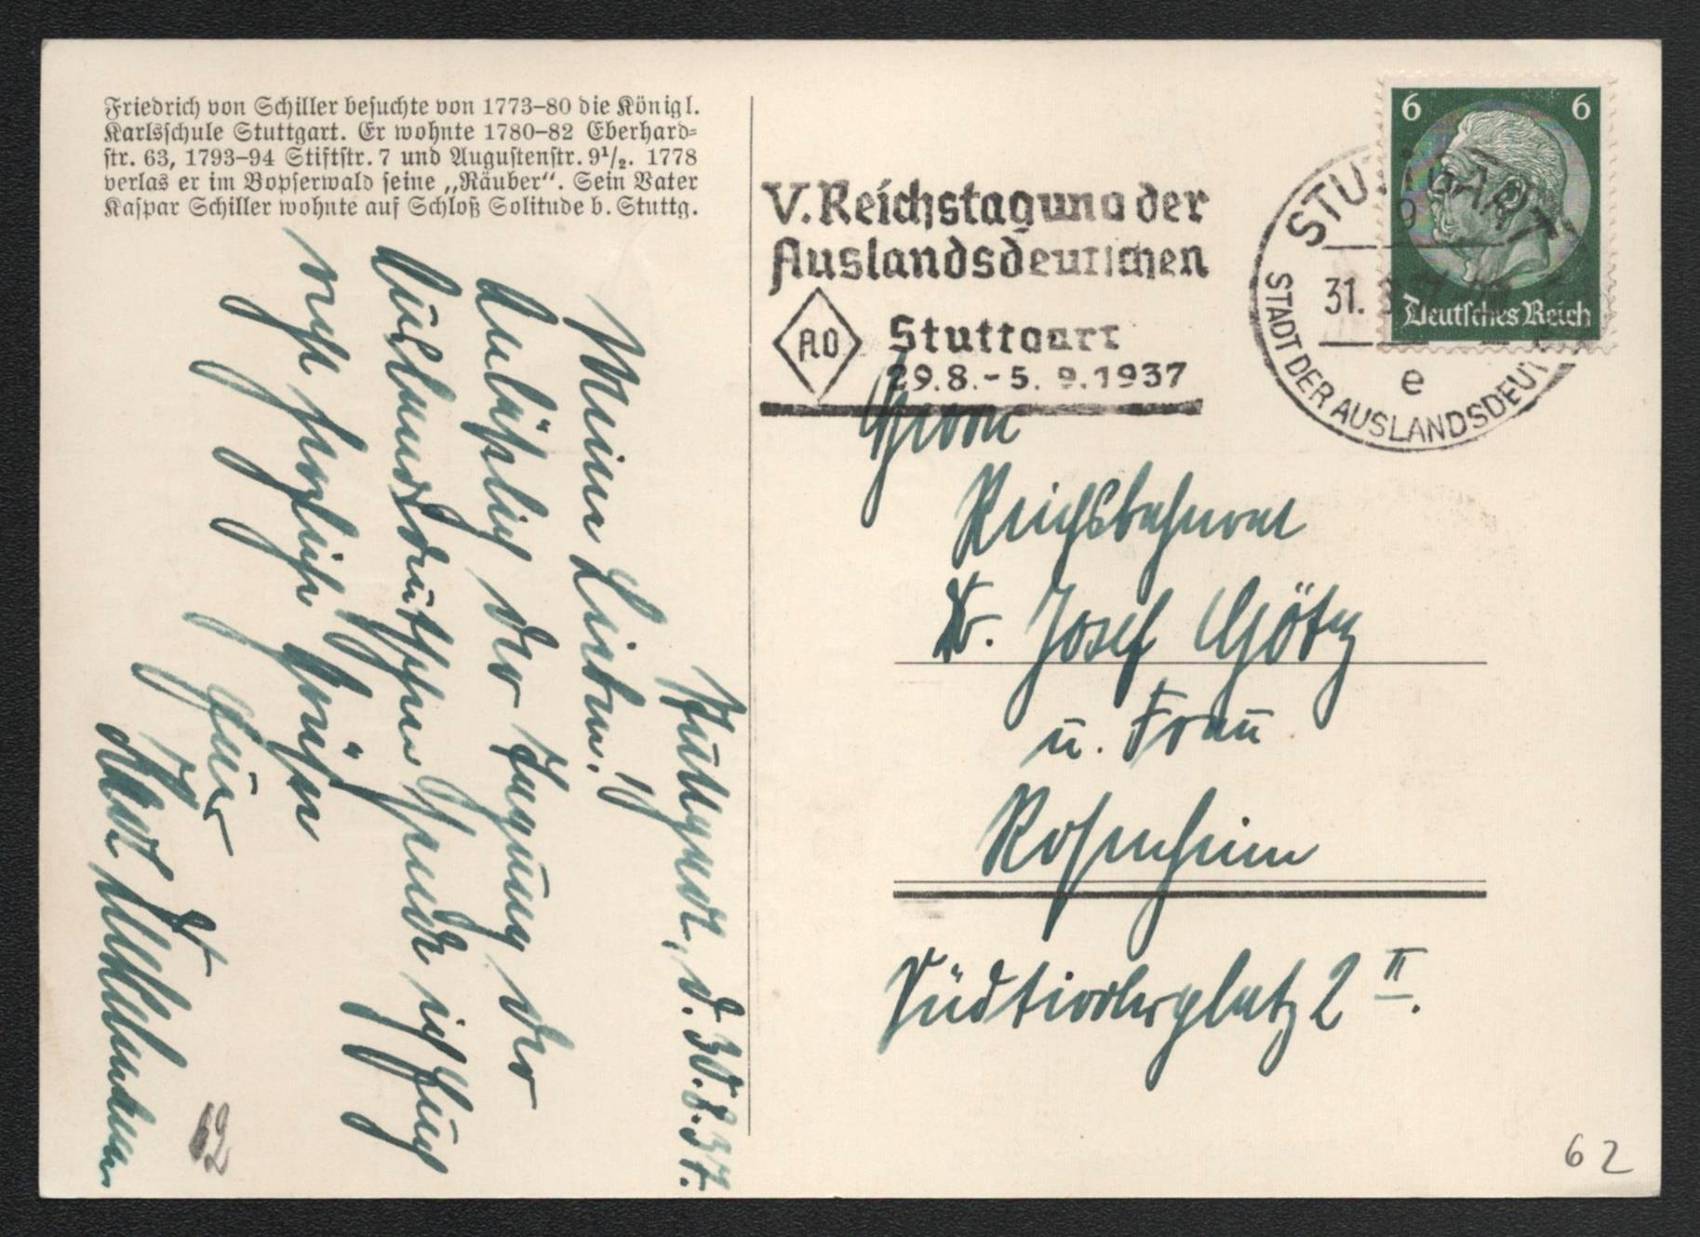 Friedrich von Schiller besuchte von 1773–80 die Königl.
Karlsschule Stuttgart. Er wohnte 1780–82 Eberhard=
str. 63, 1793–94 Stiftstr. 7 und Augustenstr. 9¹/₂. 1778
verlas er im Bopserwald seine „Räuber“. Sein Vater
Kaspar Schiller wohnte auf Schloß Solitude b. Stuttg.
Stuttgart, d. 30.8.37.
Meine Lieben!
Anläßlich der Tagung der
Auslandsdeutschen sende ich Euch
recht herzliche Grüße
Euer
V. Reichstagung der
Auslandsdeutschen
AO
Stuttgart
29.8.-5.9.1937
STUTTGART
31.
e
STADT DER AUSLANDSDEUT
6 6
Deutsches Reich
Herrn
Reichsbahnrat
Dr. Josef Götz
u. Frau
Rosenheim
Südtirolerplatz 2 II.
62
62